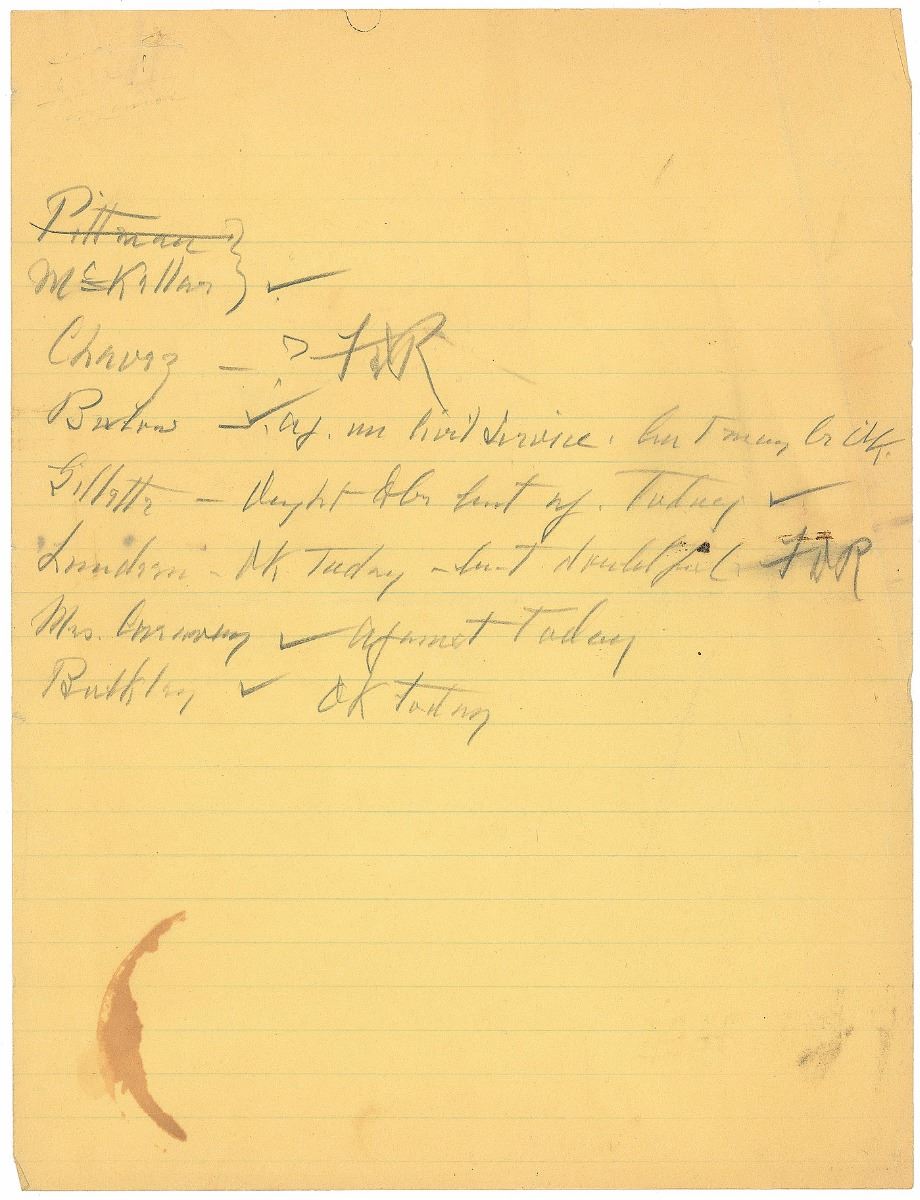 Pittman
McKellar ✓
Chavez – ? FDR
Bulow – ✓ ag. on Civil Service. but may be OK.
Gillette – Ought to be but ag. Today ✓
Lundeen – OK Today – but doubtful FDR
Mrs. Caraway ✓ against Today
Bulkley ✓ OK today